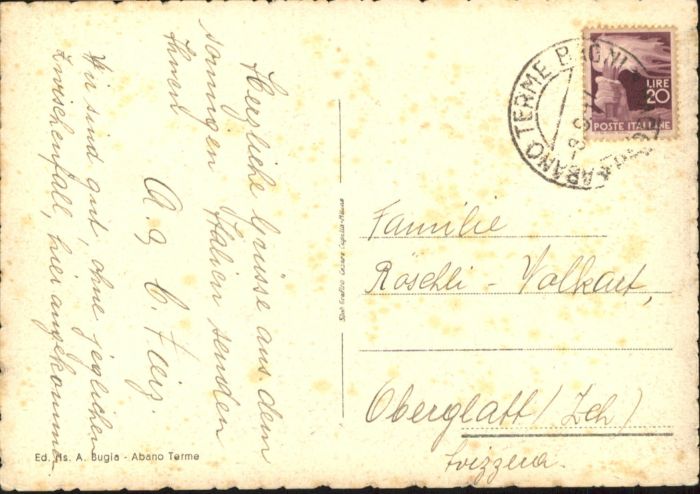 Herzliche Grüsse aus dem
sonnigen Italien senden
Ihnen
A. & C. Feiz.
Wir sind gut, ohne jeglichen
Zwischenfall, hier angekommen
Ed. Fis. A. Bugia - Abano Terme
Cesare Capello-Milano
ABANO TERME
LIRE
20
POSTE ITALIANE
Familie
Röschli - Volkart,
Oberglatt (Zch)
Svizzera.